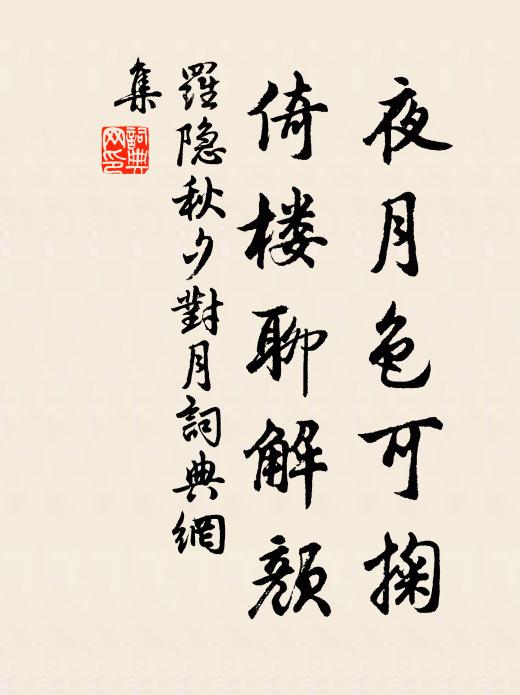 夜月色可掬
倚楼聊解颜
羅隐秋夕對月詞典網
集
詞典
网印